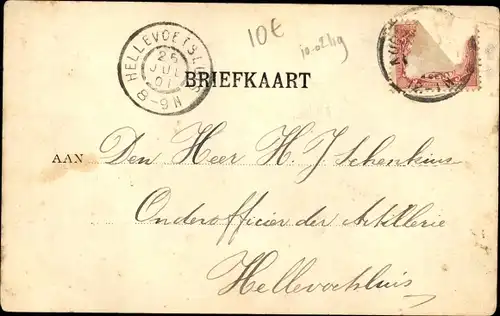 10€
10.02 hg
HELLEVOETSLUIS
26
JUL
01
8-9N
BRIEFKAART
AAN Den Heer H. J. Schenkius
Onderofficier der Artillerie
Hellevoetsluis
12-1N